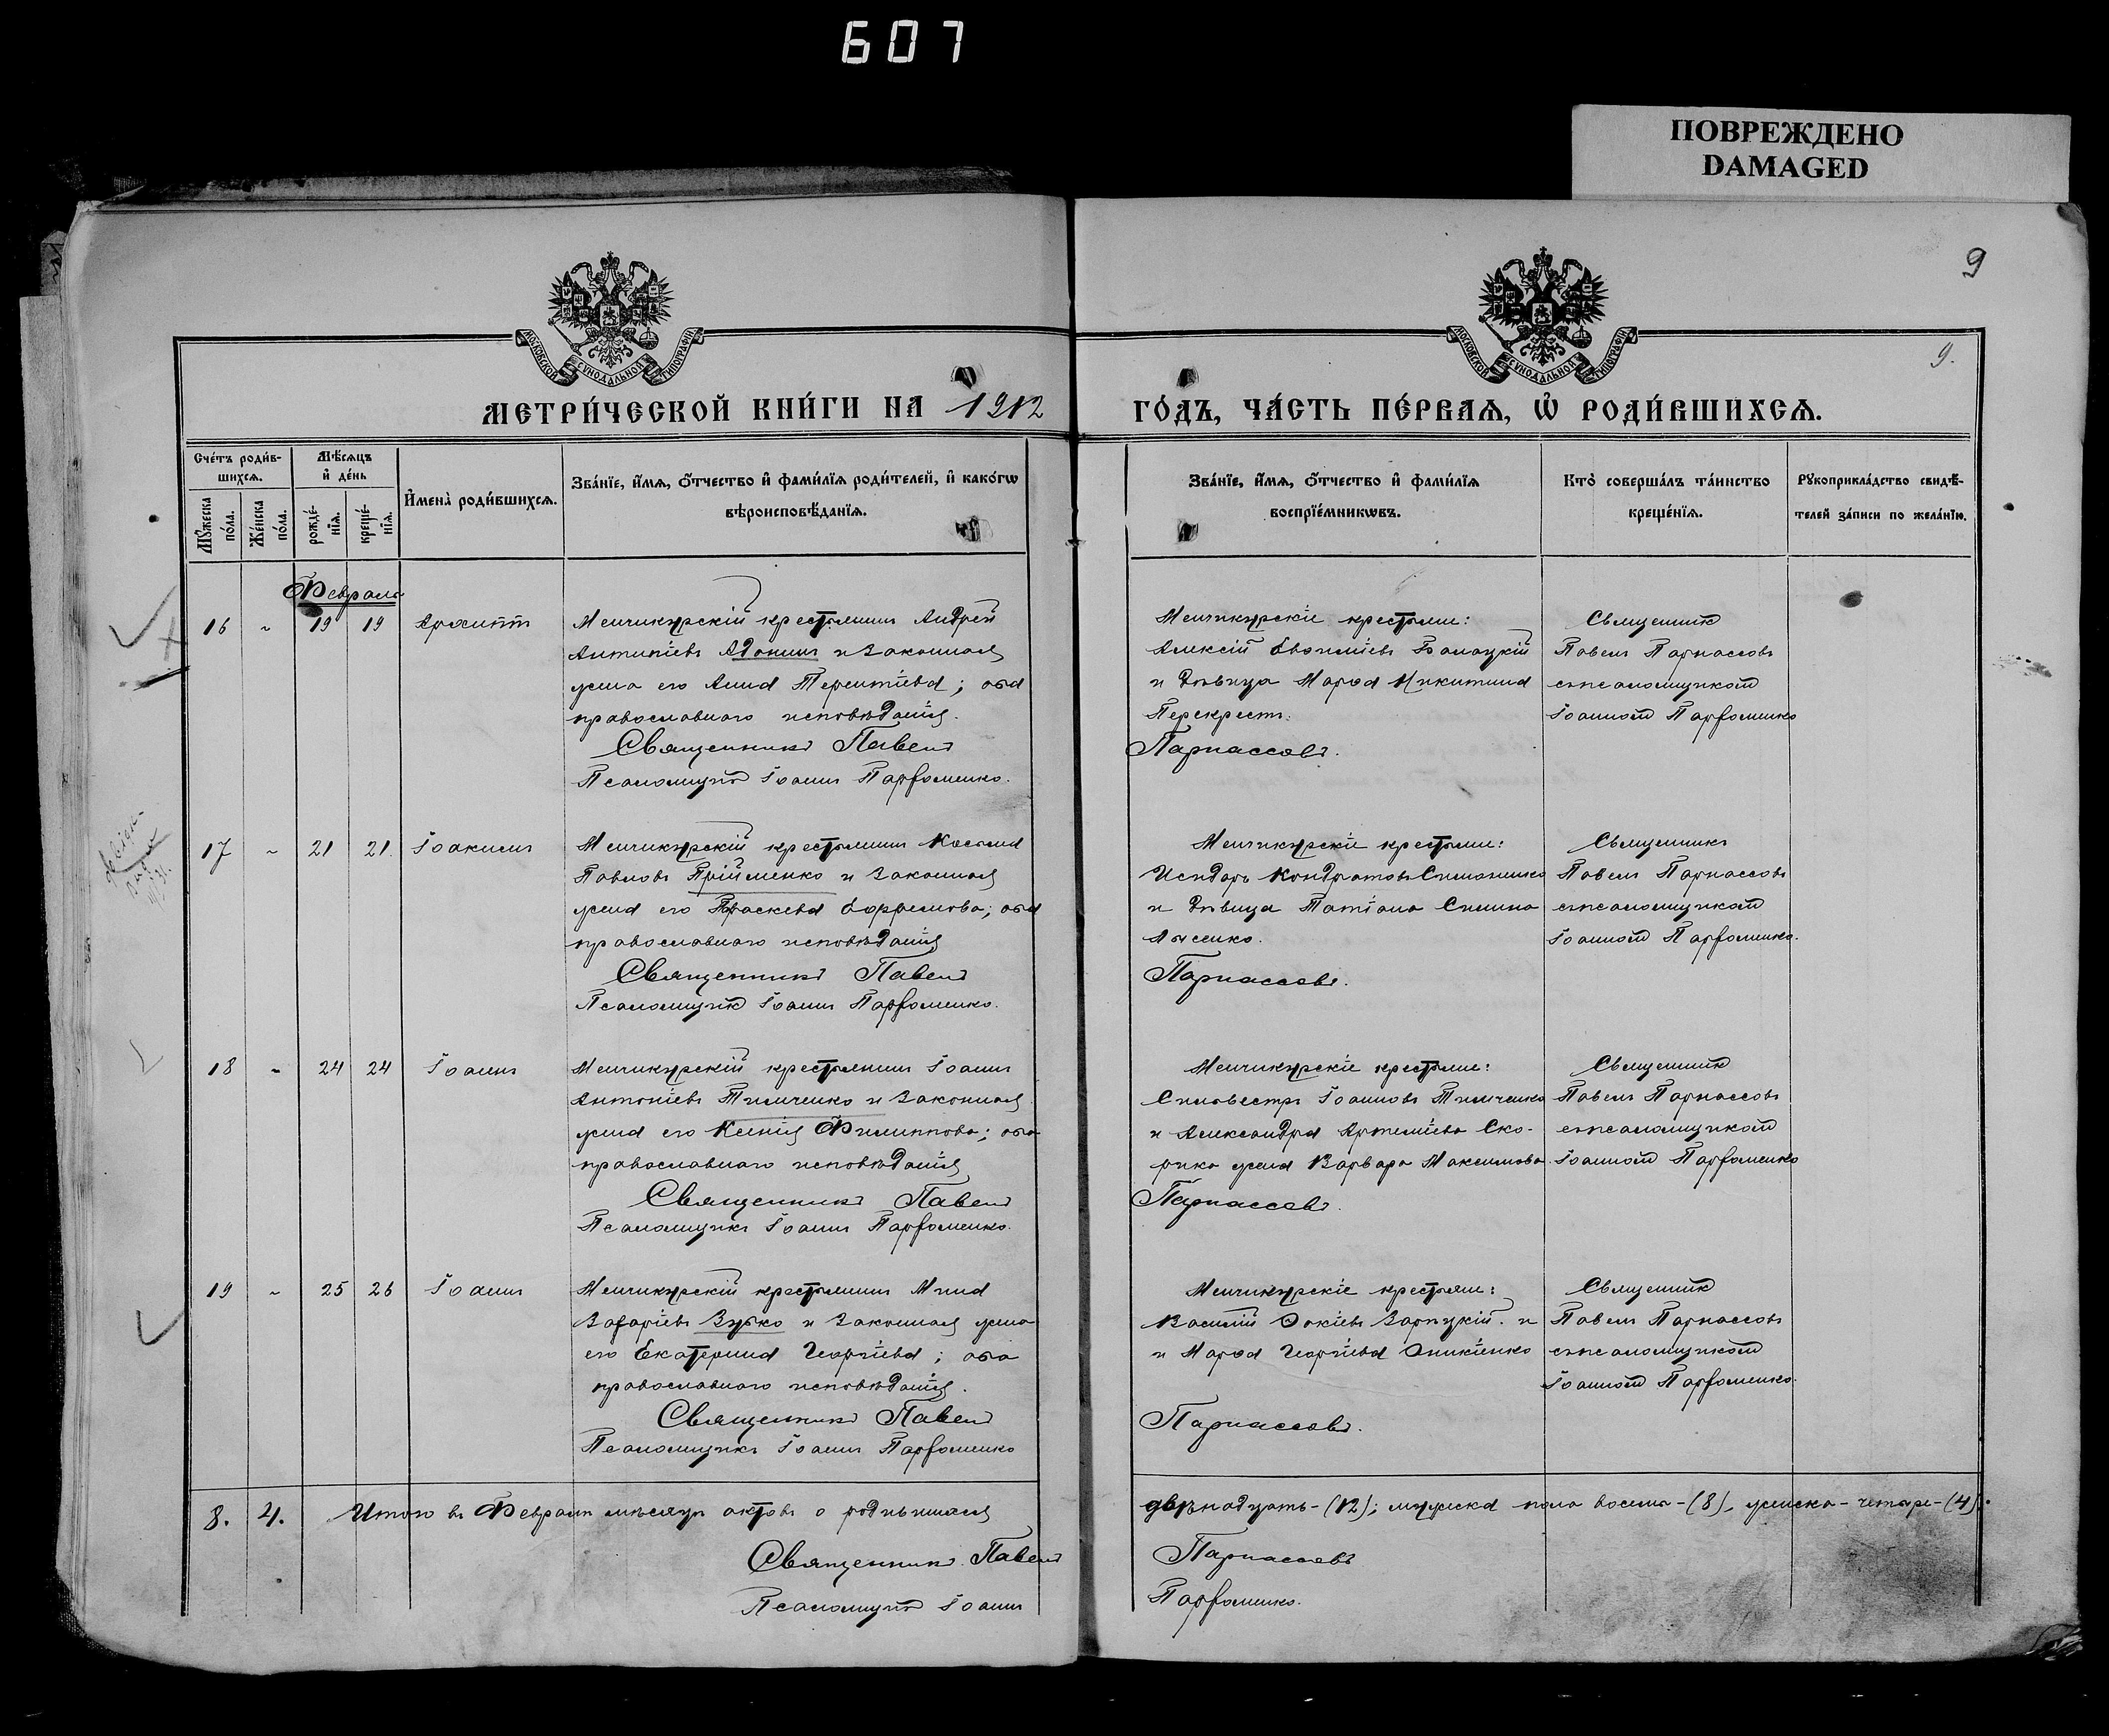 607
ПОВРЕЖДЕНО
DAMAGED
9
9.
МОСКОВСКОЙ СѴНОДАЛЬНОЙ ТИПОГРАФІИ
МОСКОВСКОЙ СѴНОДАЛЬНОЙ ТИПОГРАФІИ
МЕТРИ́ЧЕСКОЙ КНИ́ГИ НА 1912 ГО́ДЪ, ЧА́СТЬ ПЕ́РВАѦ, Ѡ҆ РОДИ́ВШИХСѦ.
Сче́тъ роди́в-
шихсѧ.
Мꙋ́жеска по́ла.
Же́нска по́ла.
Мѣ́сѧцъ
и҆ де́нь
рожде́-
нїѧ.
креще́-
нїѧ.
И҆мена̀ роди́вшихсѧ.
Зва́нїе, и҆́мѧ, ѻ҆́тчество и҆ фами́лїѧ роди́телей, и҆ како́гѡ
вѣроисповѣ́данїѧ.
Зва́нїе, и҆́мѧ, ѻ҆́тчество и҆ фами́лїѧ
воспрїе́мникѡвъ.
Кто̀ соверша́лъ та́инство
креще́нїѧ.
Рꙋкоприкла́дство свидѣ́-
телей за́писи по жела́нїю.
Февраль
16 ~ 19 19 Архипъ
Менчикурскій крестьянинъ Андрей
Антипіевъ Адонинъ и законная
жена его Анна Терентіева; оба
православнаго исповѣданія.
Священникъ Павелъ
Псаломщикъ Іоаннъ Парфоменко.
Менчикурскіе крестьяне:
Алексій Евфиміевъ
и дѣвица Марѳа Никитина
Перекрестъ.
Парнассовъ.
Священникъ
Павелъ Парнассовъ
съ псаломщикомъ
Іоанномъ Парфоменко
17 ~ 21 21. Іоакимъ
Менчикурскій крестьянинъ Косьма
Павловъ Прійменко и законная
жена его Праскева Ефремова; оба
православнаго исповѣданія
Священникъ Павелъ
Псаломщикъ Іоаннъ Парфоменко.
Менчикурскіе крестьяне:
Исидоръ Кондратовъ Симоненко
и дѣвица Татіана Симина
Лысенко.
Парнассовъ.
Священникъ
Павелъ Парнассовъ
съ псаломщикомъ
Іоанномъ Парфоменко.
18 - 24 24 Іоаннъ
Менчикурскій крестьянинъ Іоаннъ
Антоніевъ Тимченко и законная
жена его Ксенія Филиппова; оба
православнаго исповѣданія
Священникъ Павелъ
Псаломщикъ Іоаннъ Парфоменко.
Менчикурскіе крестьяне:
Сильвестръ Іоанновъ Тимченко
и Александра Артеміева Ско-
рика жена Варвара Максимова.
Парнассовъ.
Священникъ
Павелъ Парнассовъ
съ псаломщикомъ
Іоанномъ Парфоменко
19 ~ 25 26 Іоаннъ
Менчикурскій крестьянинъ Мина
Захаріевъ Зубко и законная жена
его Екатерина Георгіева; оба
православнаго исповѣданія.
Священникъ Павелъ
Псаломщикъ Іоаннъ Парфоменко
Менчикурскіе крестьяне:
Василій Фокіевъ Зарицкій. и
и Марѳа Георгіева Оникіенко
Парнассовъ.
Священникъ
Павелъ Парнассовъ
съ псаломщикомъ
Іоанномъ Парфоменко.
8. 4. Итого въ Февралѣ мѣсяцѣ актовъ о родившихся двѣнадцать - (12); мужска пола восемь - (8), женска - четыре - (4).
Священникъ Павелъ Парнассовъ
Псаломщикъ Іоаннъ Парфоменко.